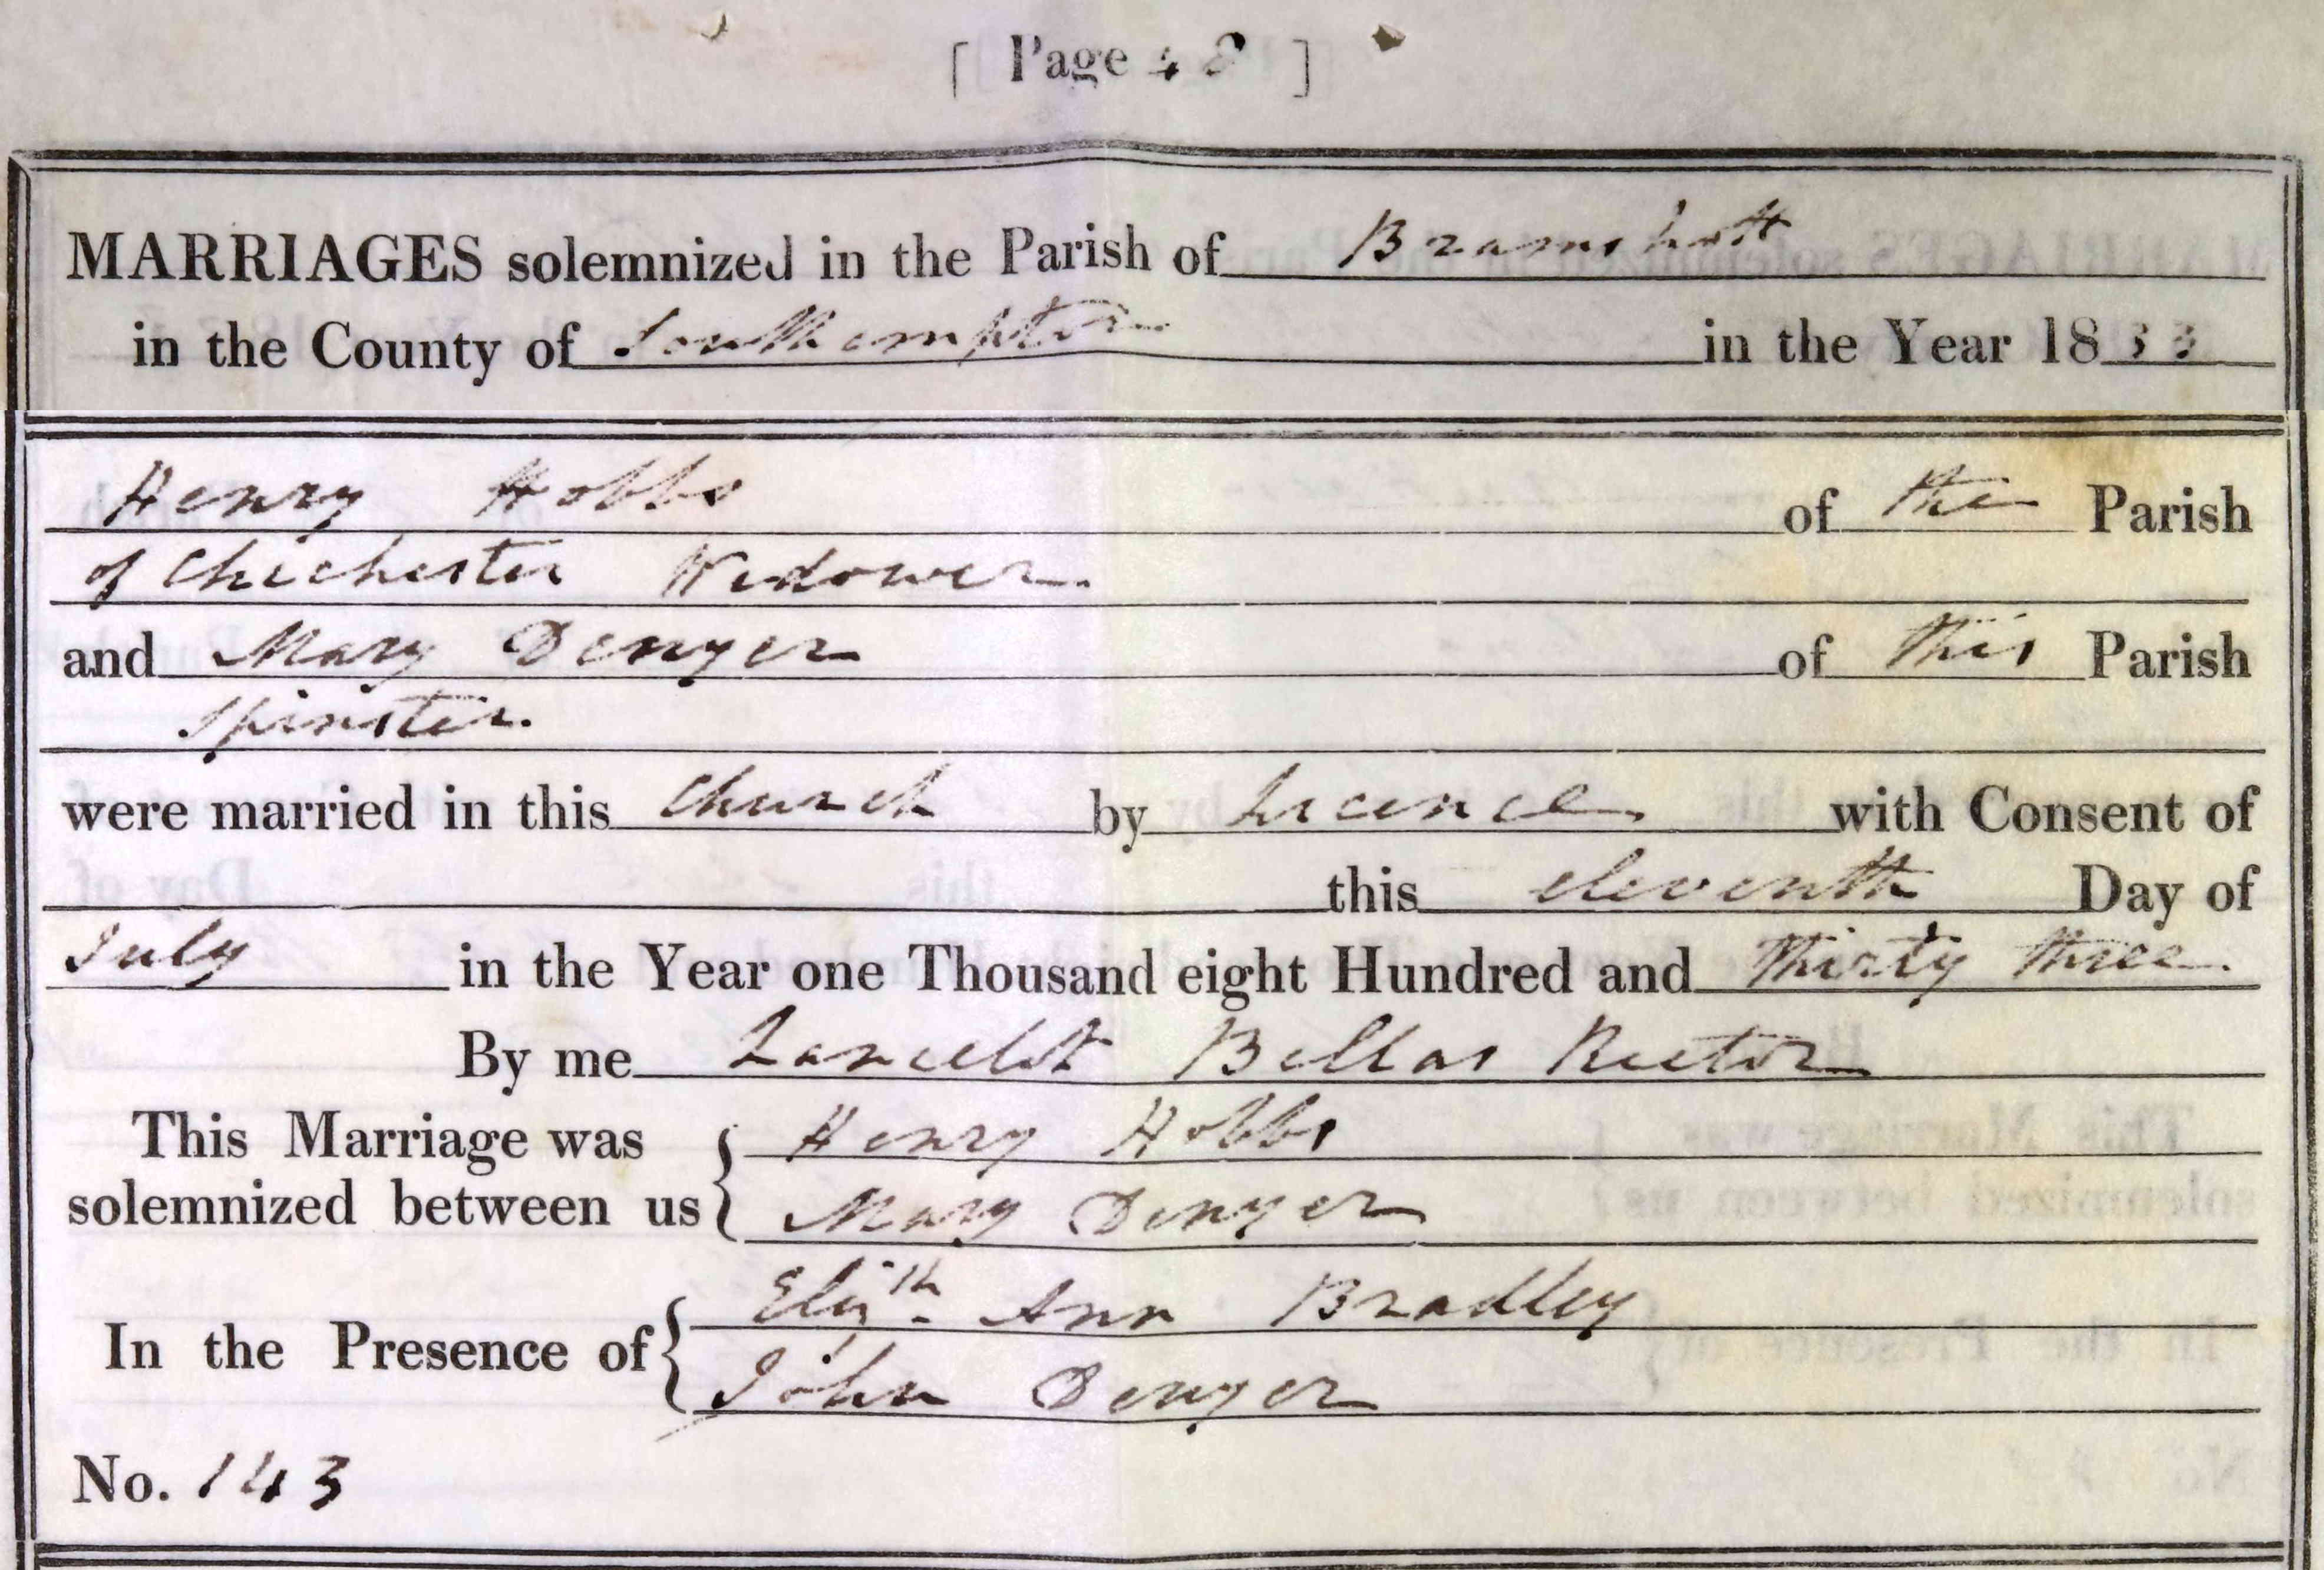 [ Page 48 ]
MARRIAGES solemnized in the Parish of Bramshott
in the County of Southampton in the Year 1833
Henry Hobbs of the Parish
of Chichester Widower.
and Mary Denyer of this Parish
Spinster.
were married in this Church by Licence with Consent of
this eleventh Day of
July in the Year one Thousand eight Hundred and Thirty three.
By me Lancelot Bellas Rector
This Marriage was { Henry Hobbs
solemnized between us { Mary Denyer
In the Presence of { Elizth Ann Bradley
John Denyer
No. 143